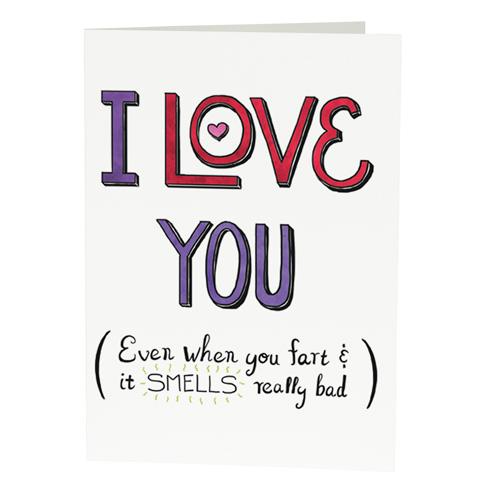 I LOVE
YOU
(Even when you fart &
it SMELLS really bad)